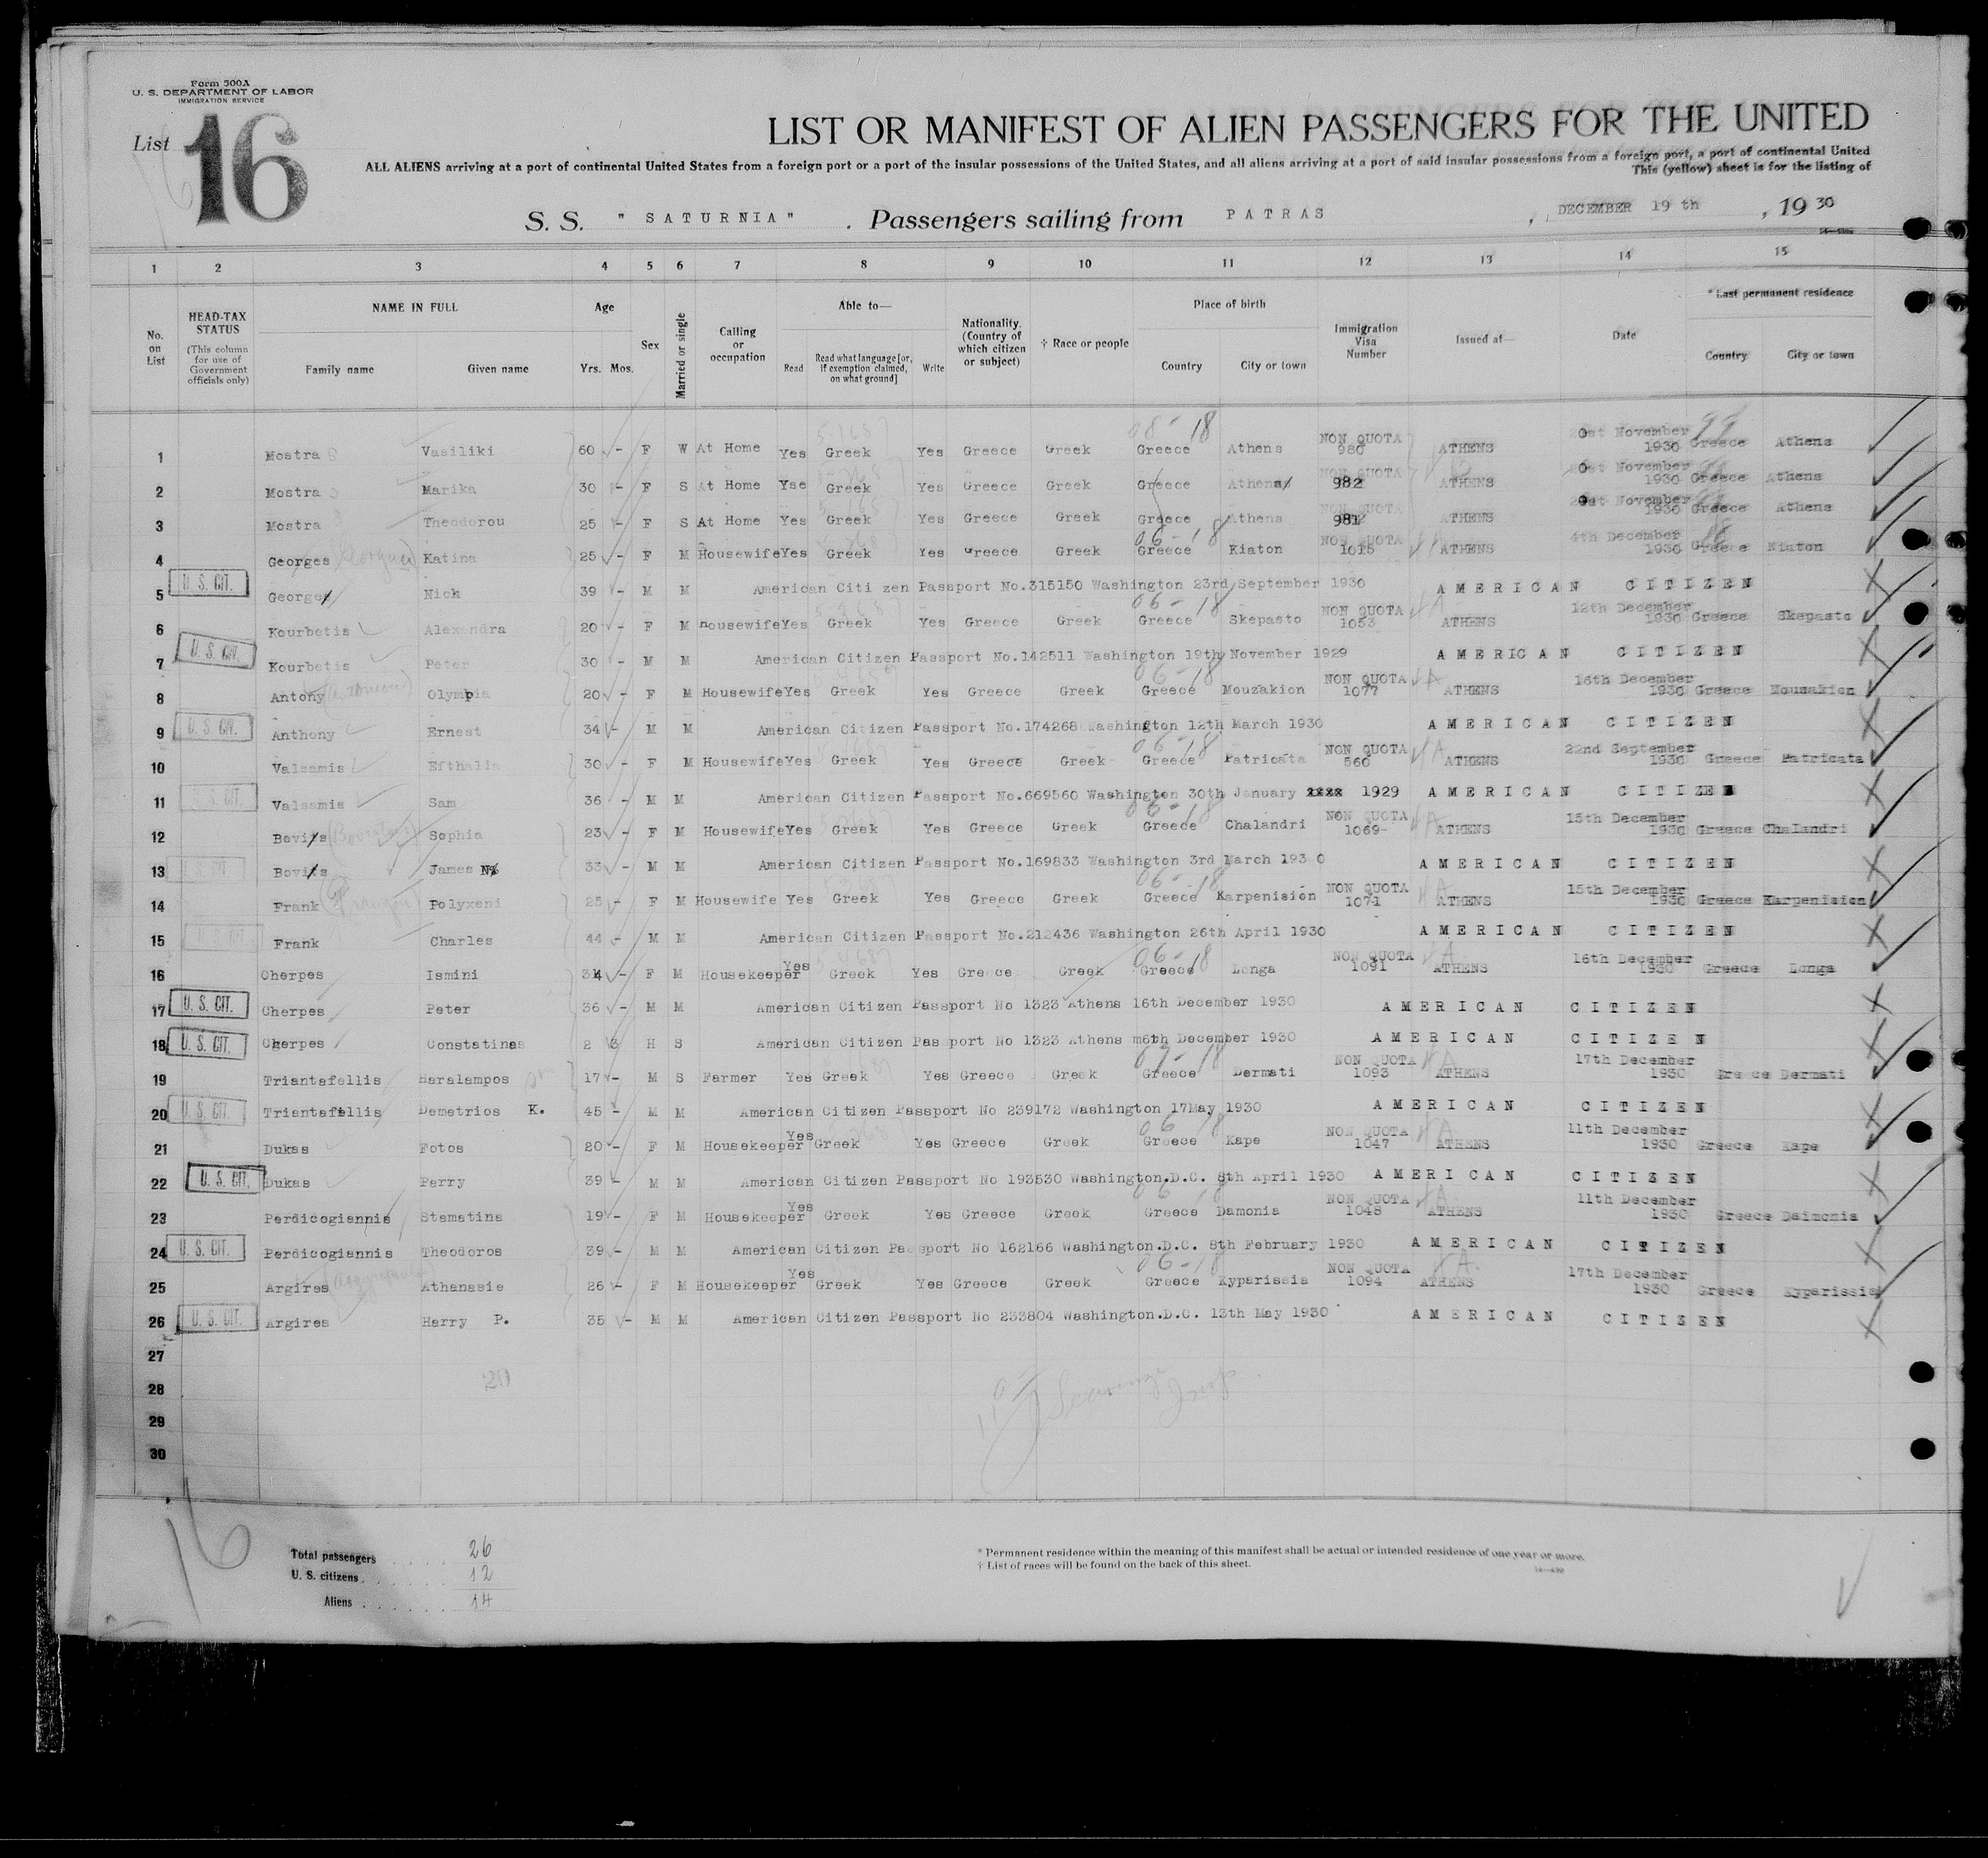 Form 500A
U. S. DEPARTMENT OF LABOR
IMMIGRATION SERVICE
List 16
LIST OR MANIFEST OF ALIEN PASSENGERS FOR THE UNITED
ALL ALIENS arriving at a port of continental United States from a foreign port or a port of the insular possessions of the United States, and all aliens arriving at a port of said insular possessions from a foreign port, a port of continental United
This (yellow) sheet is for the listing of
S. S. " SATURNIA " . Passengers sailing from PATRAS , DECEMBER 19 th , 19 30
1 2 3 4 5 6 7 8 9 10 11 12 13 14 15
No. on List
HEAD-TAX STATUS
(This column for use of Government officials only)
NAME IN FULL
Family name Given name
Age
Yrs. Mos.
Sex
Married or single
Calling or occupation
Able to—
Read Read what language [or, if exemption claimed, on what ground] Write
Nationality. (Country of which citizen or subject)
† Race or people
Place of birth
Country City or town
Immigration Visa Number
Issued at—
Date
* Last permanent residence
Country City or town
1 Mostra Vasiliki 60 - F W At Home Yes Greek Yes Greece Greek Greece Athens NON QUOTA 980 ATHENS November 1930 Greece Athens
2 Mostra Marika 30 - F S At Home Yse Greek Yes Greece Greek Greece Athens NON QUOTA 982 ATHENS November 1930 Greece Athens
3 Mostra Theodorou 25 - F S At Home Yes Greek Yes Greece Greek Greece Athens NON QUOTA 981 ATHENS November 1930 Greece Athens
4 Georges Katina 25 - F M Housewife Yes Greek Yes Greece Greek Greece Kiaton NON QUOTA 1015 ATHENS 4th December 1930 Greece Kiaton
5 U. S. CIT. George Nick 39 - M M American Citi zen Passport No.315150 Washington 23rd September 1930 AMERICAN CITIZEN
6 Kourbetis Alexandra 20 - F M housewife Yes Greek Yes Greece Greek Greece Skepasto NON QUOTA 1053 ATHENS 12th December 1930 Greece Skepasto
7 U. S. CIT. Kourbetis Peter 30 - M M American Citizen Passport No.142511 Washington 19th November 1929 AMERICAN CITIZEN
8 Antony Olympia 20 - F M Housewife Yes Greek Yes Greece Greek Greece Mouzakion NON QUOTA 1077 ATHENS 16th December 1930 Greece Mouzakion
9 U. S. CIT. Anthony Ernest 34 - M M American Citizen Passport No.174268 Washington 12th March 1930 AMERICAN CITIZEN
10 Valsamis Efthalia 30 - F M Housewife Yes Greek Yes Greece Greek Greece Patricata NON QUOTA 560 ATHENS 22nd September 1930 Greece Patricata
11 U. S. CIT. Valsamis Sam 36 - M M American Citizen Passport No.669560 Washington 30th January 1929 AMERICAN CITIZEN
12 Bovis Sophia 23 - F M Housewife Yes Greek Yes Greece Greek Greece Chalandri NON QUOTA 1069- ATHENS 15th December 1930 Greece Chalandri
13 U. S. CIT. Bovis James 33 - M M American Citizen Passport No.169833 Washington 3rd March 193 0 AMERICAN CITIZEN
14 Frank Polyxeni 25 - F M Housewife Yes Greek Yes Greece Greek Greece Karpenision NON QUOTA 1071 ATHENS 15th December 1930 Greece Karpenision
15 U. S. CIT. Frank Charles 44 - M M American Citizen Passport No.212436 Washington 26th April 1930 AMERICAN CITIZEN
16 Cherpes Ismini 34 - F M Housekeeper Yes Greek Yes Greece Greek Greece Longa NON QUOTA 1091 ATHENS 16th December 1930 Greece Longa
17 U. S. CIT. Cherpes Peter 36 - M M American Citizen Passport No 1323 Athens 16th December 1930 AMERICAN CITIZEN
18 U. S. CIT. Cherpes Constatinas 2 3 H S American Citizen Passport No 1323 Athens m6th December 1930 AMERICAN CITIZEN
19 Triantafellis Haralampos son 17 - M S Farmer Yes Greek Yes Greece Greek Greece Dermati NON QUOTA 1093 ATHENS 17th December 1930 Greece Dermati
20 U. S. CIT. Triantafellis Demetrios K. 45 - M M American Citizen Passport No 239172 Washington 17May 1930 AMERICAN CITIZEN
21 Dukas Fotos 20 - F M Housekeeper Yes Greek Yes Greece Greek Greece Kape NON QUOTA 1047 ATHENS 11th December 1930 Greece Kape
22 U. S. CIT. Dukas Perry 39 - M M American Citizen Passport No 193530 Washington.D.C. 8th April 1930 AMERICAN CITIZEN
23 Perdicogiannis Stamatina 19 - F M Housekeeper Yes Greek Yes Greece Greek Greece Damonia NON QUOTA 1048 ATHENS 11th December 1930 Greece Daimonia
24 U. S. CIT. Perdicogiannis Theodoros 39 - M M American Citizen Passport No 162166 Washington.D.C. 8th February 1930 AMERICAN CITIZEN
25 Argires Athanasie 26 - F M Housekeeper Yes Greek Yes Greece Greek Greece Kyparissia NON QUOTA 1094 ATHENS 17th December 1930 Greece Kyparissia
26 U. S. CIT. Argires Harry P. 35 - M M American Citizen Passport No 233804 Washington.D.C. 13th May 1930 AMERICAN CITIZEN
27
28
29
30
16
Total passengers . . . . . 26
U. S. citizens . . . . . . 12
Aliens . . . . . . 14
* Permanent residence within the meaning of this manifest shall be actual or intended residence of one year or more.
† List of races will be found on the back of this sheet.